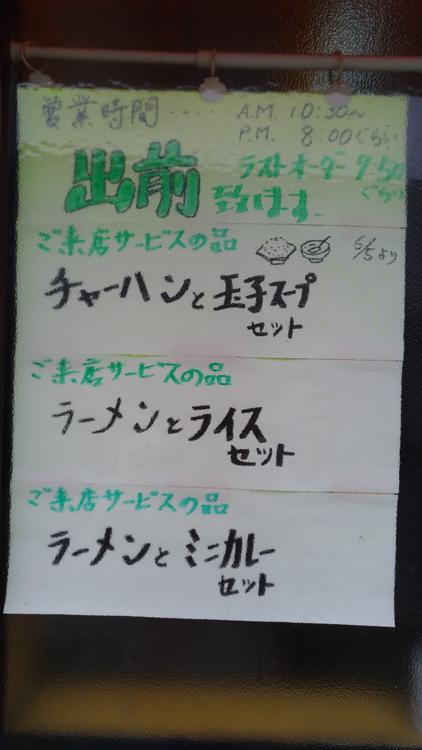 営業時間‥‥ A.M. 10:30～
P.M. 8:00ぐらい
出前致します。
ラストオーダー 7:50
ぐらい
ご来店サービスの品
6/5より
チャーハンと玉子スープ
セット
ご来店サービスの品
ラーメンとライス
セット
ご来店サービスの品
ラーメンとミニカレー
セット